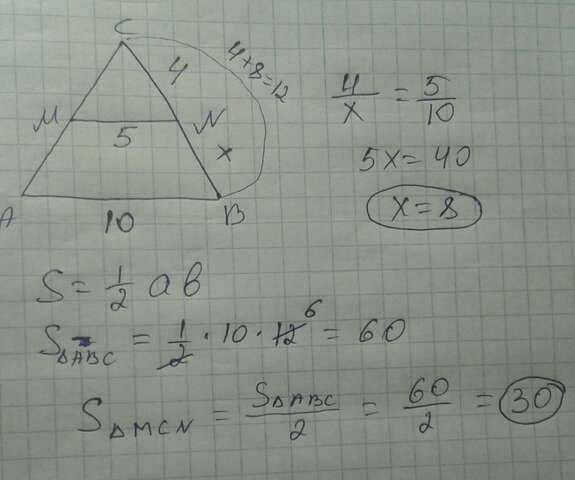 C
4
4+8=12
M
N
5
x
A
10
B
4/x = 5/10
5x=40
x=8
S = 1/2 ab
S△ABC = 1/2 · 10 · 12 6 = 60
S△MCN = S△ABC/2 = 60/2 = 30